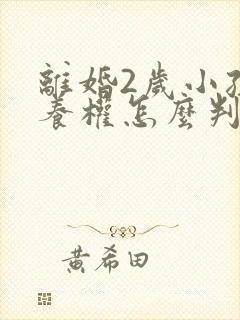 離婚2歲小孩
養權怎麼判
黃希田